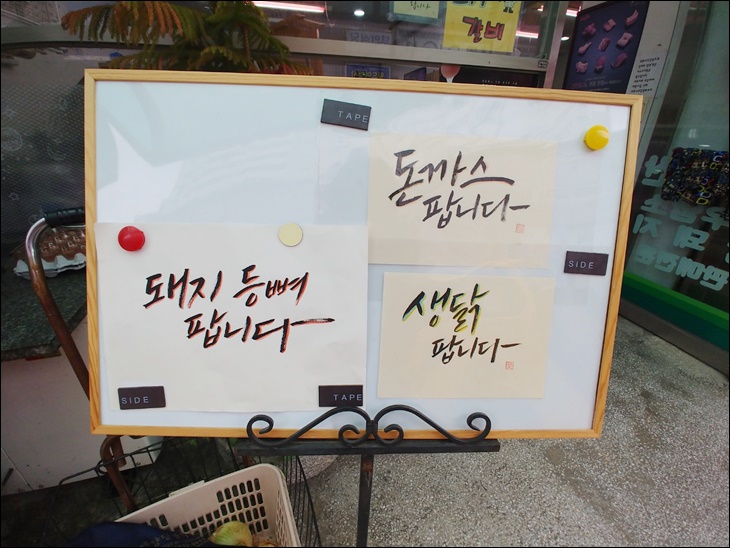 갈비
TAPE
돈까스
팝니다
SIDE
돼지 등뼈
팝니다
생닭
팝니다
SIDE
TAPE